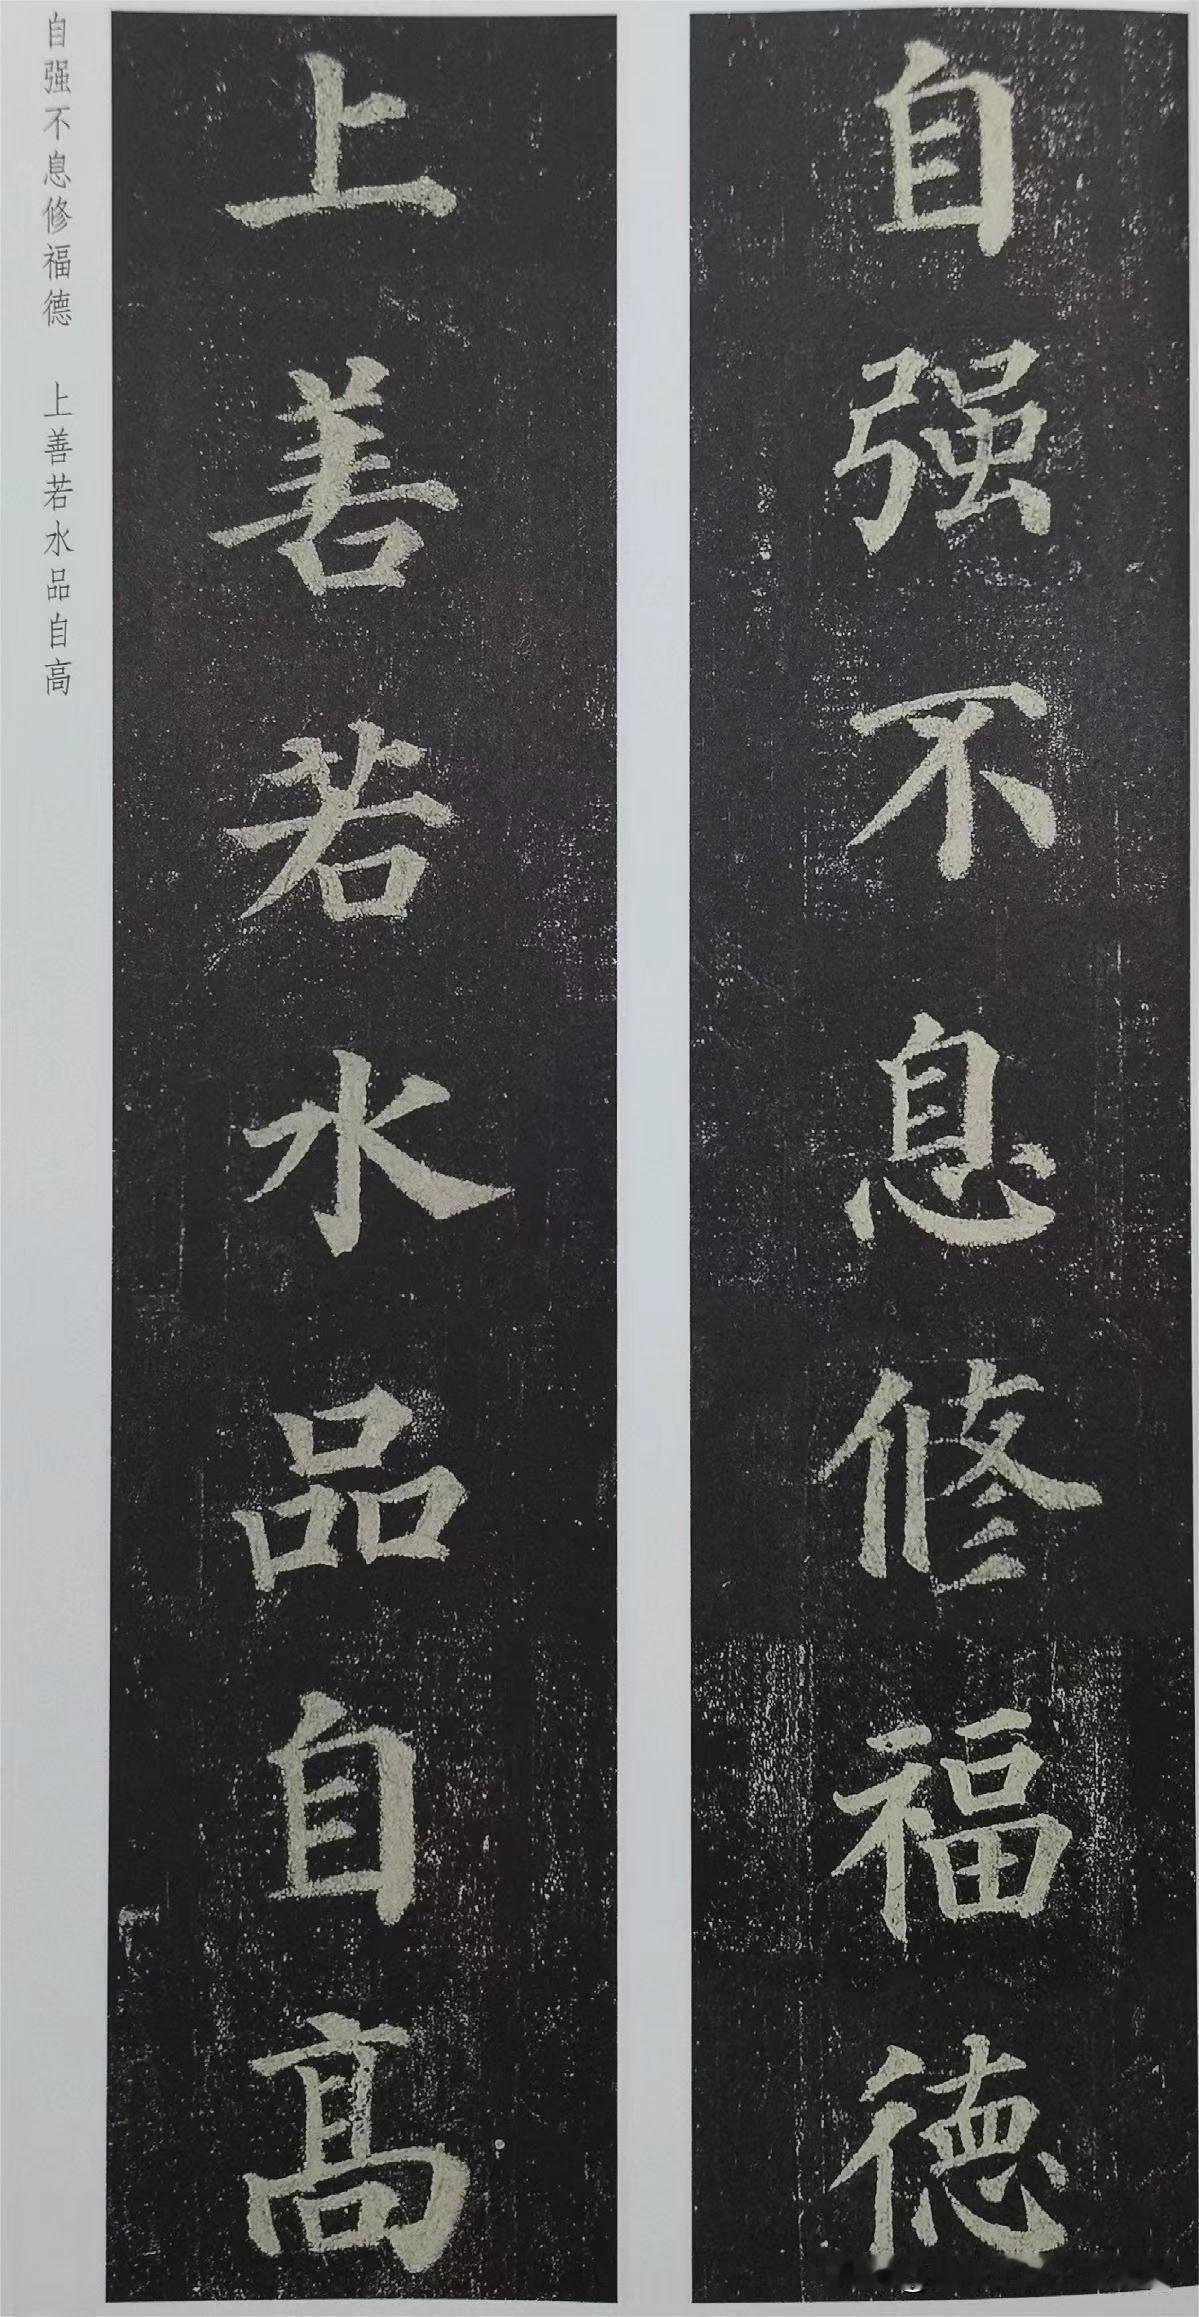 自强不息修福德
上善若水品自高
自强不息修福德　上善若水品自高